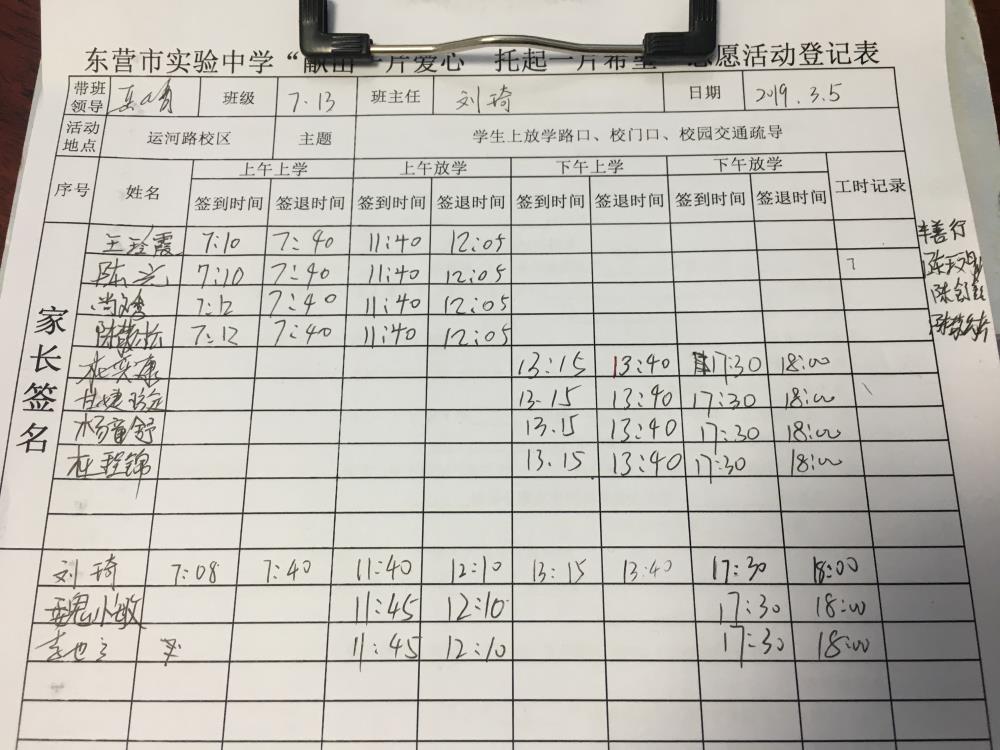 东营市实验中学“献出一片爱心 托起一片希望”志愿活动登记表
带班领导 班级 7.13 班主任 刘琦 日期 2019.3.5
活动地点 运河路校区 主题 学生上放学路口、校门口、校园交通疏导
序号 姓名 上午上学 上午放学 下午上学 下午放学 工时记录
签到时间 签退时间 签到时间 签退时间 签到时间 签退时间 签到时间 签退时间
家长签名
王玲霞 7:10 7:40 11:40 12:05
陈兴 7:10 7:40 11:40 12:05
7:12 7:40 11:40 12:05
7:12 7:40 11:40 12:05
13:15 13:40 17:30 18:00
13.15 13:40 17:30 18:00
杨童舒 13.15 13:40 17:30 18:00
杜程锦 13.15 13:40 17:30 18:00
刘琦 7:08 7:40 11:40 12:10 13:15 13:40 17:30 18:00
魏小敏 11:45 12:10 17:30 18:00
11:45 12:10 17:30 18:00